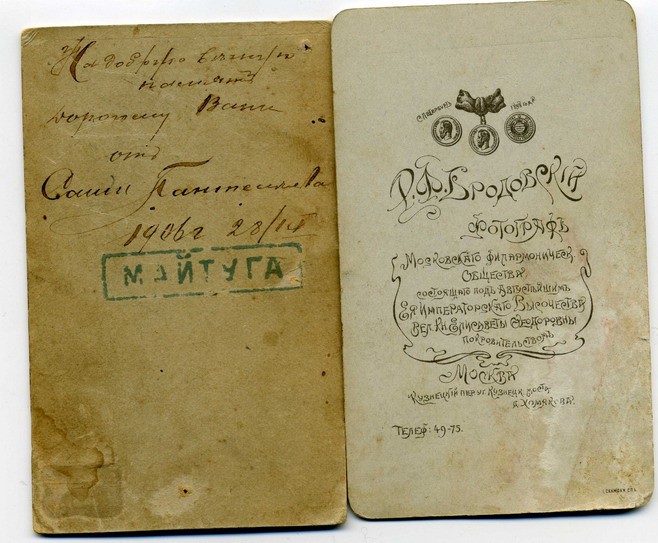 На добрую вѣчную
память
дорогому Вани
отъ
Саши Пантелѣева
1906 г 28/III
МАЙТУГА
С.ПЕТЕРБУРГЪ
Р. Ф. БРОДОВСКІЙ
ФОТОГРАФЪ
МОСКОВСКАГО ФИЛАРМОНИЧЕСК.
ОБЩЕСТВА
СОСТОЯЩАГО ПОДЪ АВГУСТѢЙШИМЪ
ЕЯ ИМПЕРАТОРСКАГО ВЫСОЧЕСТВА
ВЕЛ. КН. ЕЛИСАВЕТЫ ѲЕОДОРОВНЫ
ПОКРОВИТЕЛЬСТВОМЪ
МОСКВА
КУЗНЕЦКІЙ ПЕР. УГ. КУЗНЕЦК. МОСТА
Д. ХОМЯКОВА.
ТЕЛЕФ: 49-75.